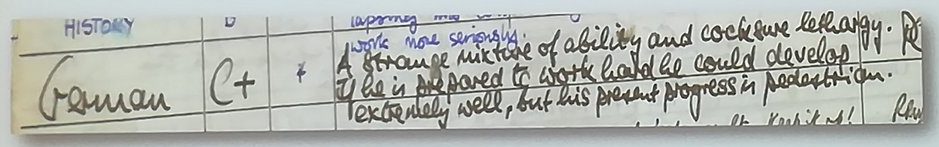 HISTORY B
work more seriously.
German C+ + A strange mixture of ability and cocksure lethargy.
If he is prepared to work hard he could develop
extremely well, but his present progress is pedestrian.